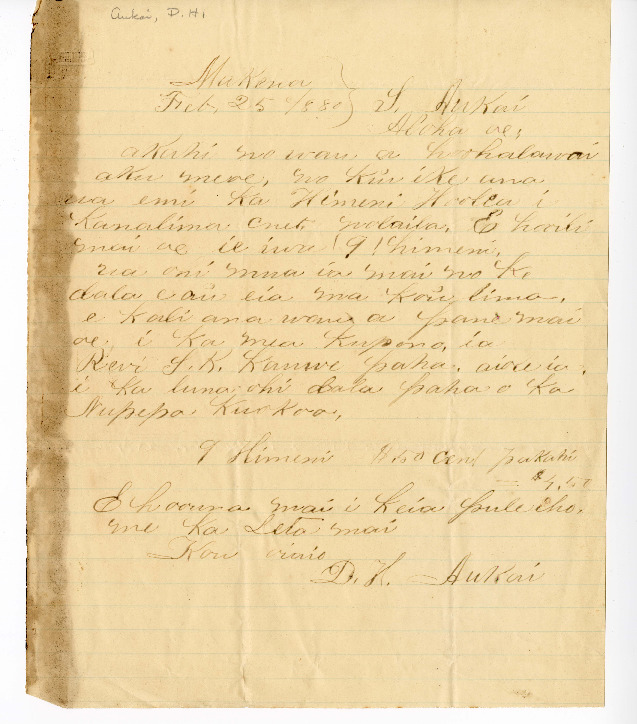 Aukai, D. H.
Mukona
Feb, 25 1880 } S. Aukai
Aloha oe;
akahi no wau a hoohalawai
aku meoe, no kuu ike ana
ua emi ka Himeni Hoolea i
kanalima cnet. wolaila. E hooili
mai oe ie iwa (9) himeni.
ua oni mua ia mai no ke
dala eaū eia ma kou lima.
e kali ana wau a pane mai
oe, i ka mea kupono, ia
Revi S. K. Kauwe paha. aiole ia.
i ka luna ohi dala paha o ka
Nupepa Kuokoa,
9 Himeni 4.50 cent pakahi
= $4.50
E hoouna mai i keia pule iho.
me ka Leta mai
Kou oiaio
D. K. Aukai